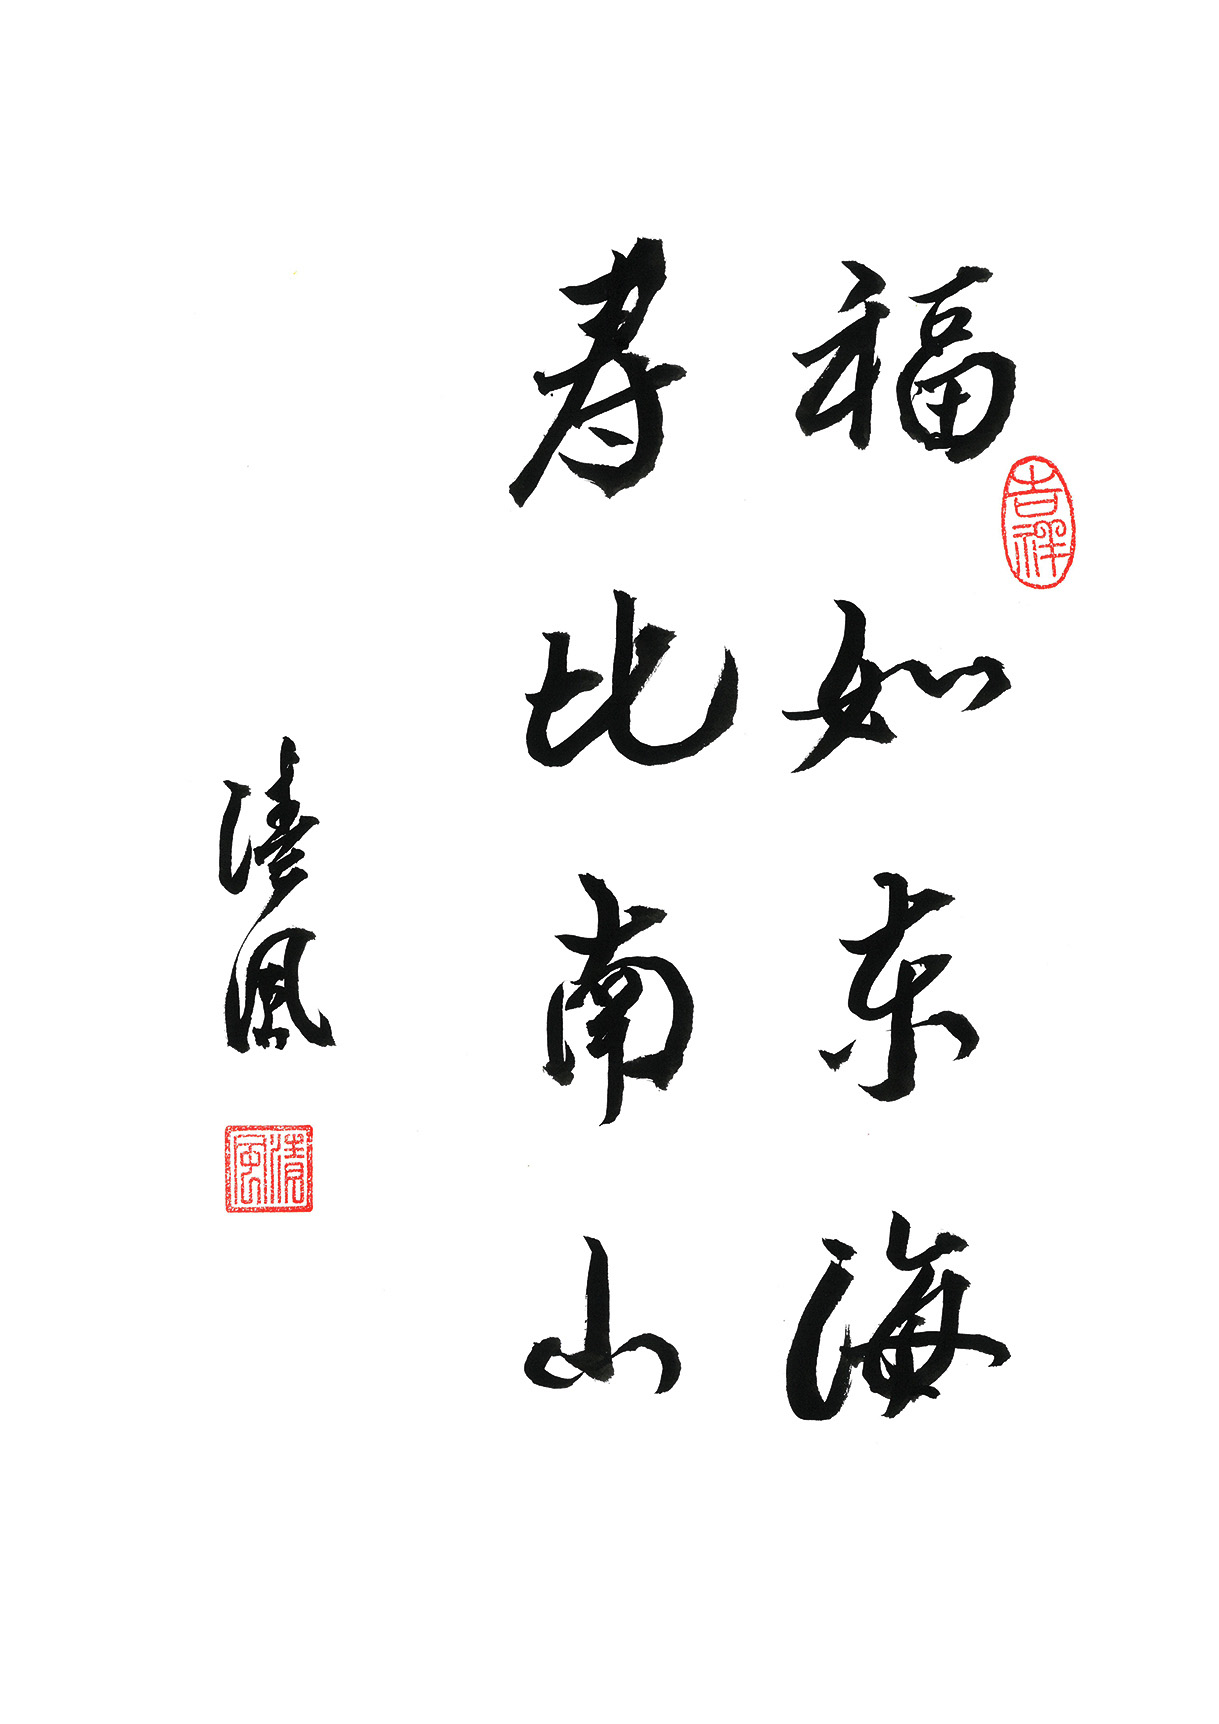 福如东海
吉祥
寿比南山
清风
清风